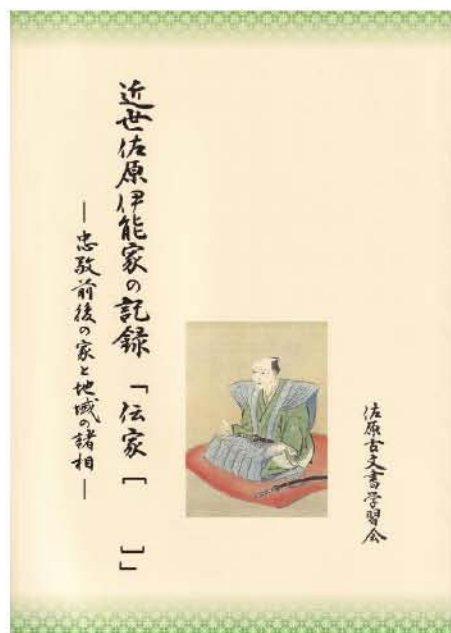 近世佐原伊能家の記録 「伝家［　　］」
―忠敬前後の家と地域の諸相―
佐原古文書学習会